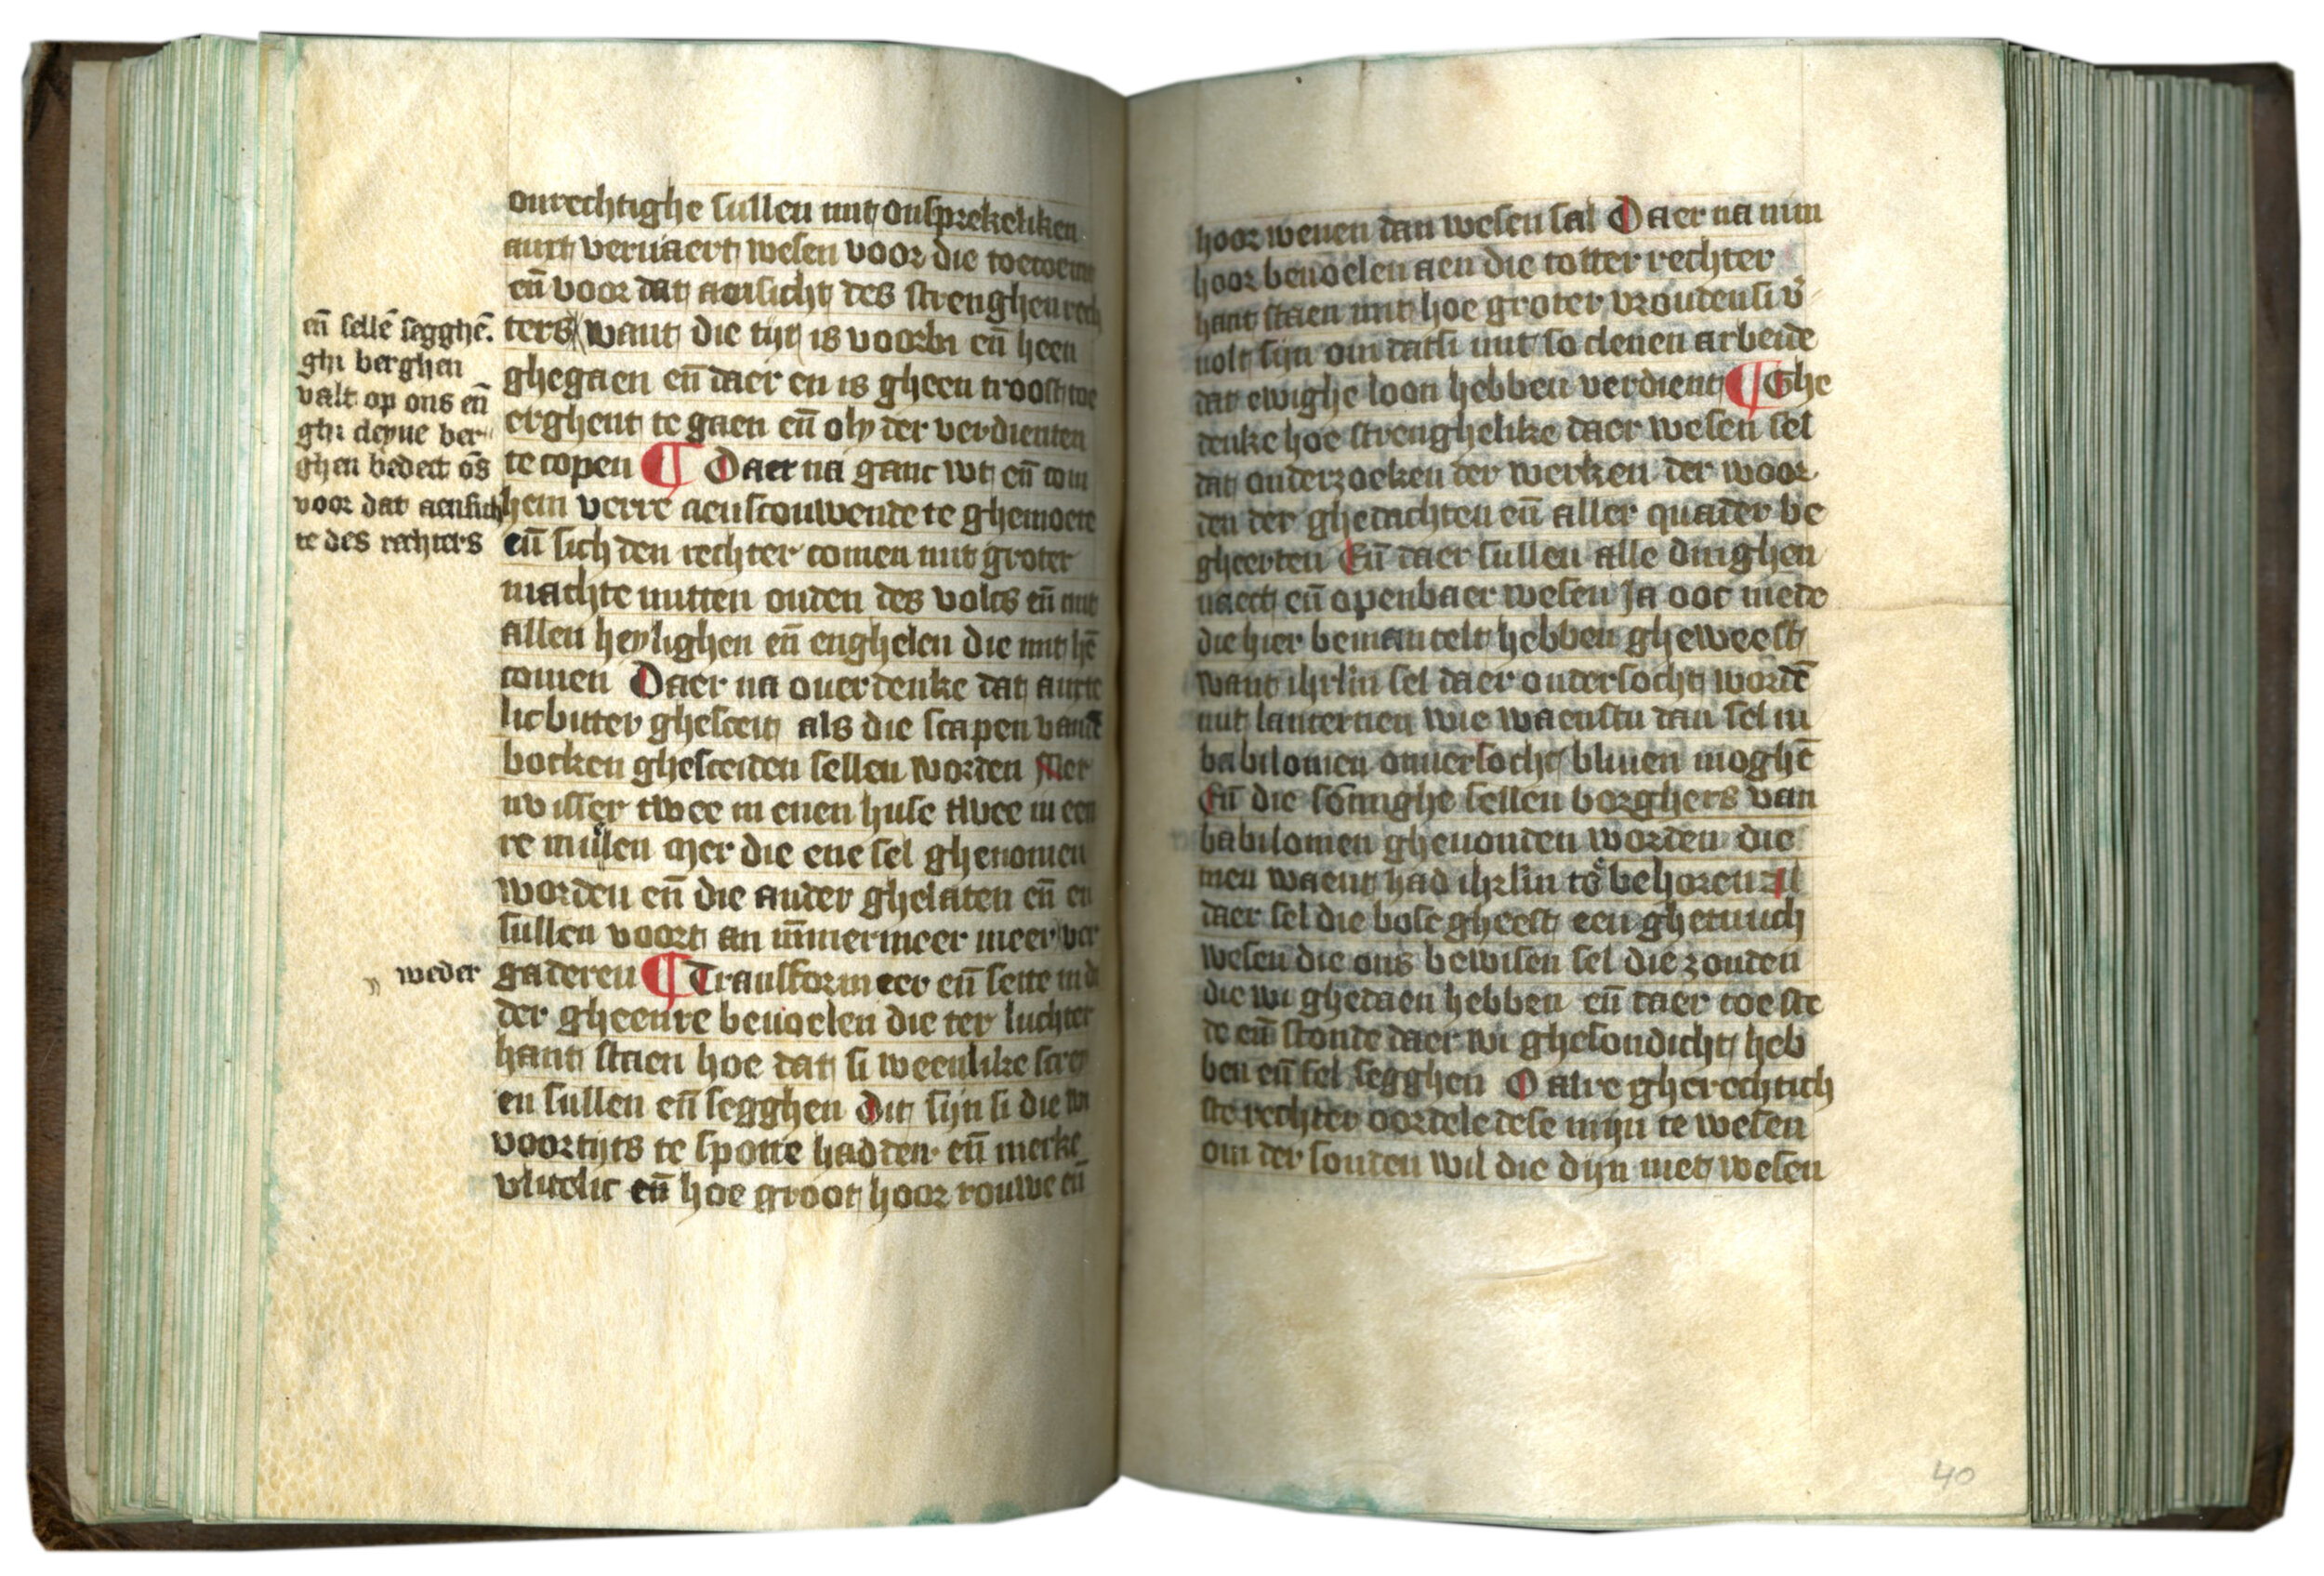 onrechtighe sullen mit onsprekeliken
anxt vervaert wesen voor die toecoemst
eñ voor dat aensicht des strenghen rech
ters want die tijt is voorbi eñ heen
ghegaen eñ daer en is gheen troost toe
erghent te gaen eñ oly der verdienten
te copen ¶ Daer na ganc wt eñ com
hem verre aenscouwende te ghemoete
eñ sich den rechter comen mit groter
machte mitten ouden des volcs eñ mit
allen heylighen eñ enghelen die mit hē
comen Daer na overdenke dat anxte
lic bitter ghesceit als die scapen vandē
bocken ghesceiden sellen worden Mer
nv isser twee in enen huse twee in een
re mulen mer die ene sel ghenomen
worden eñ die ander ghelaten eñ en
sullen voort an ūmermeer meer ver
gaderen ¶ Transformeer eñ sette in di
der gheenre bevoelen die ter luchter
hant staen hoe dat si weenlike screy
en sullen eñ segghen Dit sijn si die wi
voortijts te spotte hadden eñ merke
vlitelic eñ hoe groot hoor rouwe eñ
eñ sellē segghē.
ghi berghen
valt op ons eñ
ghi dipue ber
ghen bedect ōs
voor dat aensich
te des rechters
weder
hoor wenen dan wesen sal Daer na nim
hoor bevoelen aen die totter rechter
hant staen mit hoe groter vrouden si v̄
volt sijn om datsi mit so clenen arbeide
dat ewighe loon hebben verdient ¶ Ghe
denke hoe strenghelike daer wesen sel
dat onderzoeken der werken der woor
den der ghedachten eñ aller quader be
gheerten Eñ daer sullen alle dinghen
naect eñ openbaer wesen Ja ooc mede
die hier bemantelt hebben gheweest
want ihrl̄m sel daer ondersocht wordē
mit lanternen wie waenstu dan sel in
babilonien onversocht bliven moghē
Eñ die sōmighe sellen borghers van
babilonien ghevonden worden die
men waent had ihrl̄m to behoren Al
daer sel die bose gheest een ghetuuch
wesen die ons bewisen sel die zonden
die wi ghedaen hebben eñ daer toe ste
de eñ stonde daer wi ghesondicht heb
ben eñ sel segghen O alre gherechtich
ste rechter oordele dese mijn te wesen
om der sonden wil die dijn niet wesen
40